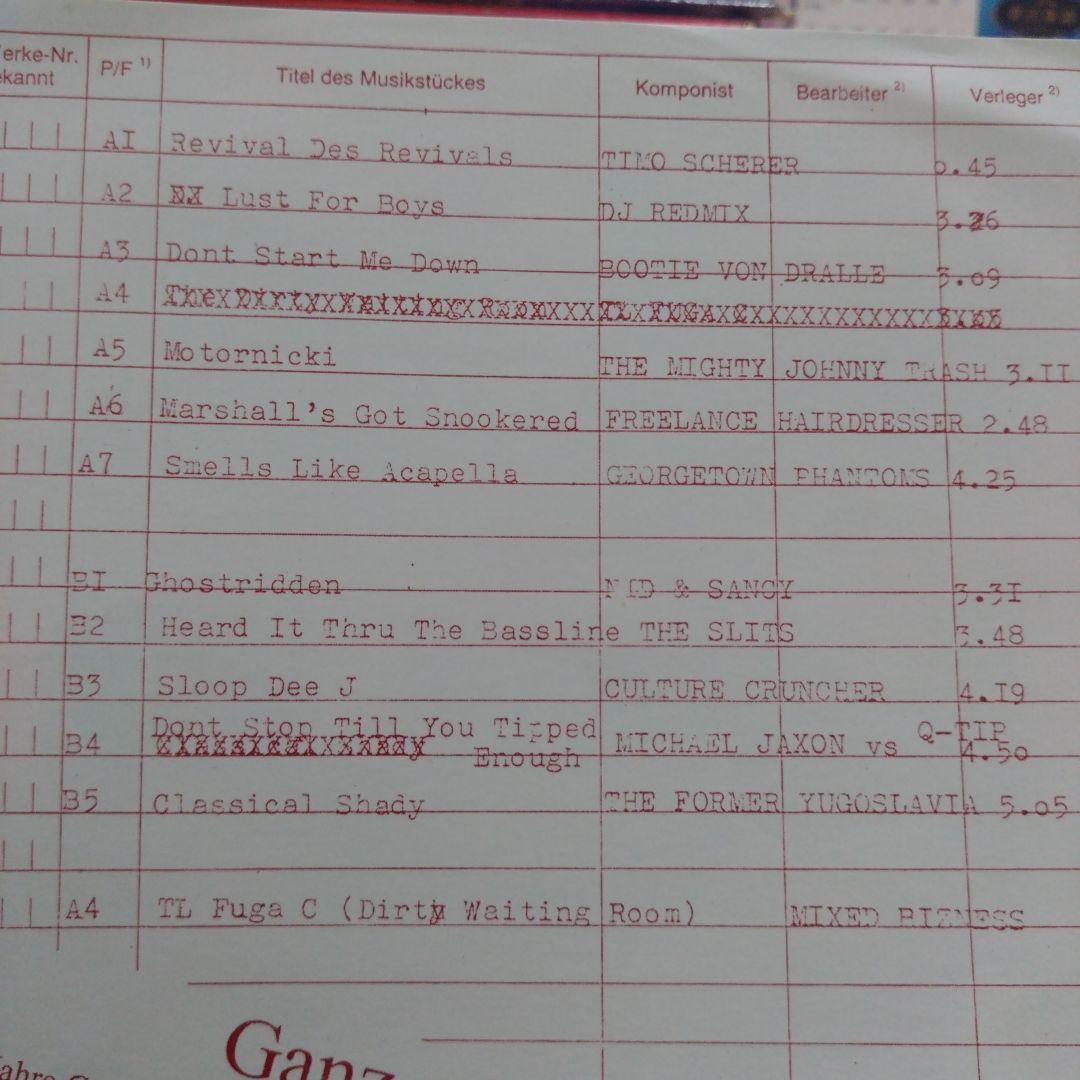 erke-Nr. P/F 1) Titel des Musikstückes Komponist Bearbeiter 2) Verleger 2)
ekannt
AI Revival Des Revivals TIMO SCHERER .45
A2 Lust For Boys DJ REDMIX 3.26
A3 Dont Start Me Down BOOTIE VON DRALLE 3.09
A4
A5 Motornicki THE MIGHTY JOHNNY TRASH 3.II
A6 Marshall's Got Snookered FREELANCE HAIRDRESSER 2.48
A7 Smells Like Acapella GEORGETOWN PHANTOMS 4.25
BI Ghostridden & SANCY 3.3I
B2 Heard It Thru The Bassline THE SLITS 3.48
B3 Sloop Dee J CULTURE CRUNCHER 4.I9
Dont Stop Till You Tipped Q-TIP
B4 MICHAEL JAXON vs 4.50
Enough
B5 Classical Shady THE FORMER YUGOSLAVIA 5.05
A4 TL Fuga C (Dirty Waiting Room) MIXED BIZNESS
Ganz
ahre